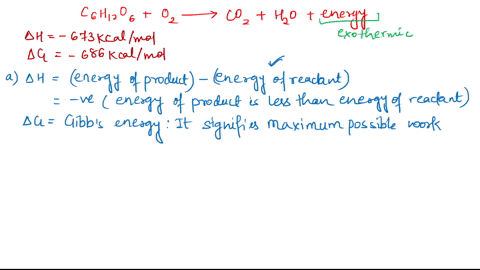 C6H12O6 + O2 ⟶ CO2 + H2O + energy
exothermic
ΔH = -673 kcal/mol
ΔG = -686 kcal/mol
a) ΔH = (energy of product) - (energy of reactant)
= -ve (energy of product is less than energy of reactant)
ΔG = Gibb's energy : It signifies maximum possible work